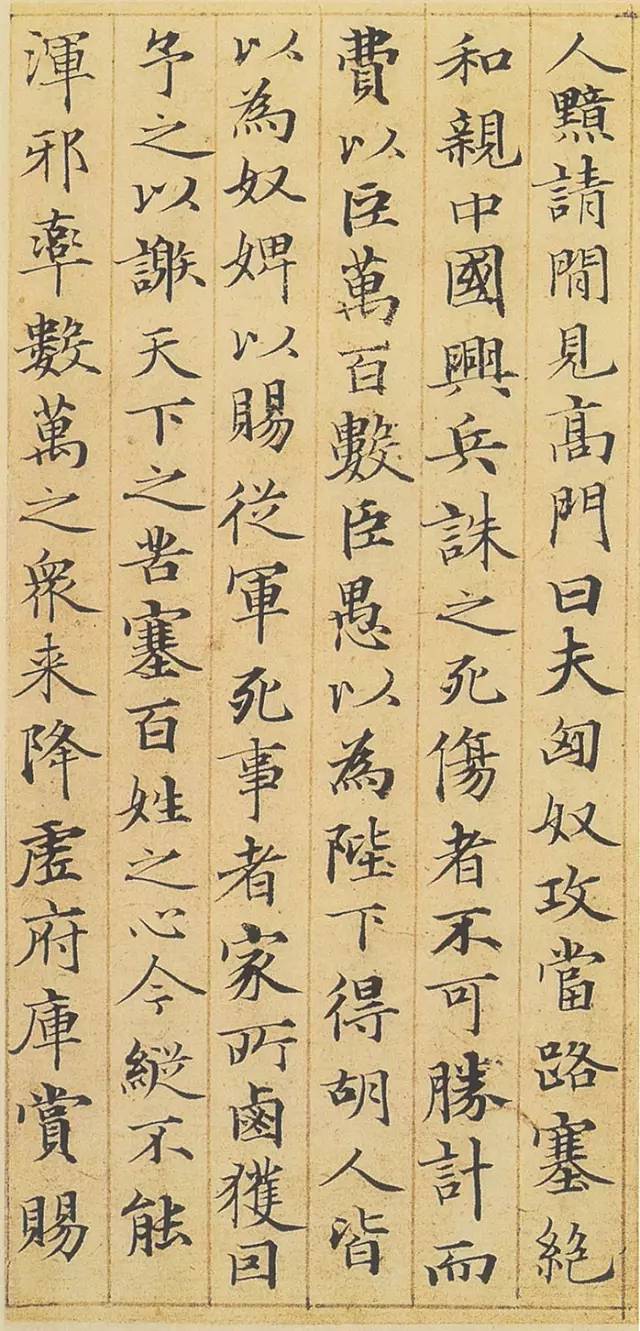 人黯請間見高門曰夫匈奴攻當路塞絶
和親中國興兵誅之死傷者不可勝計而
費以臣萬百數臣愚以為陛下得胡人皆
以為奴婢以賜從軍死事者家所鹵獲因
予之以謝天下之苦塞百姓之心今縱不能
渾邪率數萬之衆来降虛府庫賞賜